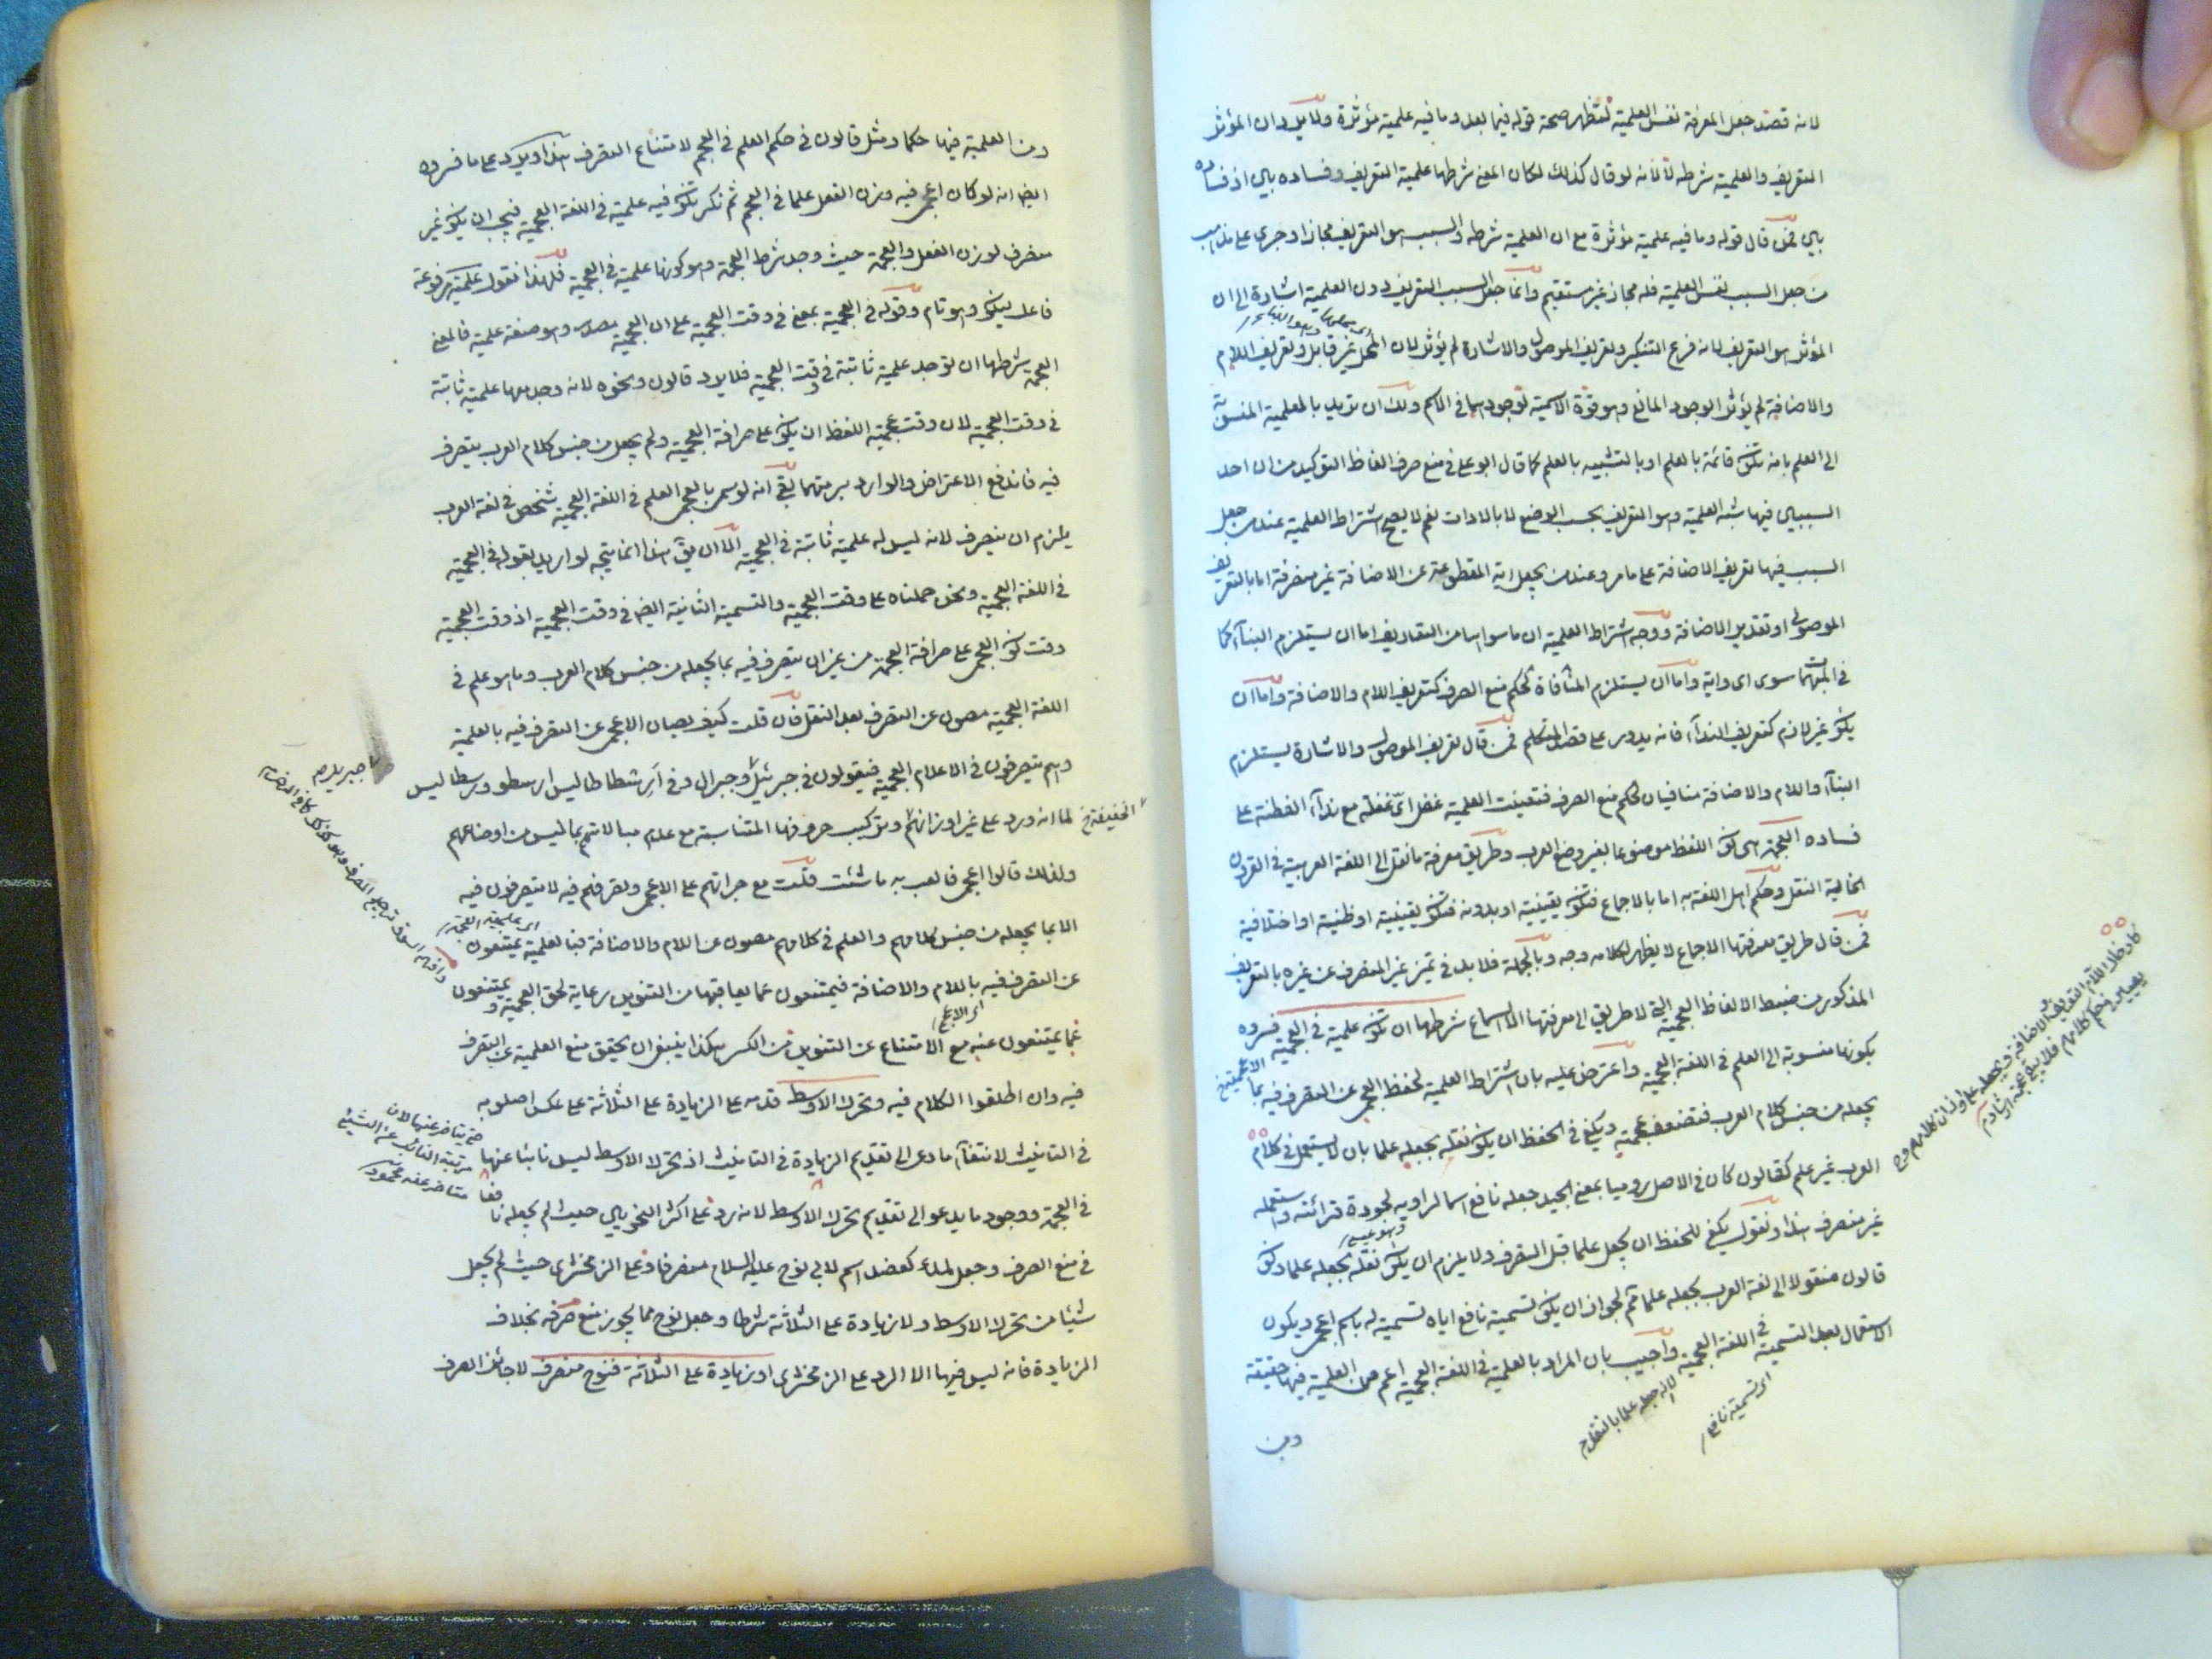 لانه قصد جعل المعرفة نفس العلمية لتظهر صحة قوله فيما بعد وما فيه علمية مؤثرة ولا يرد ان المؤثر
التعريف والعلمية شرطه لانه لو قال كذلك لكان المعنى شرطها علمية التعريف وفساده بين اذ فساده
بين فمن قال قوله وما فيه علمية مؤثرة مع ان العلمية شرطه والسبب هو التعريف مجاز او جرى على مذهب
من جعل السبب نفس العلمية فله مجاز غير مستقيم وانما جعل السبب التعريف دون العلمية اشارة الى ان
المؤثر هو التعريف لانه فرع التنكير وتعريف الموصول والاشارة لم يؤثر لان المحل غير قابل وتعريف اللام
والاضافة لم يؤثر لوجود المانع وهو قوة الاسمية لوجودهما في الاسم ولك ان تريد بالعلمية المنسوبة
الى العلم بان تكون قائمة بالعلم او بالتشبيه بالعلم كما قال ابو علي في منع صرف الفاظ التوكيد من ان احد
السببين فيها شبه العلمية وهو التعريف بحسب الوضع لا بالادات نعم لا يصح اشتراط العلمية عند من جعل
السبب فيها تعريف الاضافة على ما مر وعند من يجعل اية المقطوعة عن الاضافة غير منصرفة اما بالتعريف
الموصولي او تقدير الاضافة ووجه اشتراط العلمية ان ما سواها من التعاريف اما ان يستلزم البناء كما
في المبهمات سوى اى واية واما ان يستلزم المنافاة لحكم منع الصرف كتعريف اللام والاضافة واما ان
يكون غير لازم كتعريف النداء فانه يدور على قصد المتكلم فمن قال تعريف الموصول والاشارة يستلزم
البناء واللام والاضافة منافيان لحكم منع الصرف فتعينت العلمية غفل اى غفلة مع نداء الفطنة على
فساده العجمة هى كون اللفظ موضوعا بغير وضع العرب وطريق معرفة ما نقل الى اللغة العربية في القرون
الخالية النقل وحكم اهل اللغة به اما بالاجماع فتكون يقينية او بدونه فتكون يقينية او ظنية او اختلافية
فمن قال طريق معرفتها الاجماع لا يظهر لكلامه وجه وبالجملة فلا بد في تميز غير المنصرف عن غيره بالتعريف
المذكور من ضبط الالفاظ العجمية التي لا طريق الى معرفتها الا السماع شرطها ان تكون علمية في العجمية فسروه
بكونها منسوبة الى العلم في اللغة العجمية واعترض عليه بان اشتراط العلمية لحفظ العجمي عن التصرف فيه بما
يجعله من جنس كلام العرب فتضعف عجميته ويكفي في الحفظ ان يكون نقله بجعله علما بان لا يستعمل في كلام
العرب غير علم كقالون كان في الاصل روميا بمعنى الجيد جعله نافع اسما لراويه لجودة قرائته واستعمله
غير منصرف هذا ونقول يكفي للحفظ ان يجعل علما قبل التصرف ولا يلزم ان يكون نقله بجعله علما وكون
قالون منقولا الى لغة العرب بجعله علما ثم لجواز ان يكون تسمية نافع اياه تسمية له باسم اعجمي ويكون
الاستعمال بعد التسمية في اللغة العجمية واجيب بان المراد بالعلمية في اللغة العجمية اعم من العلمية فيها حقيقة
اى تسمية نافع
ومن
ومن العلمية فيها حكما ومثل قالون في حكم العلم في العجم لامتناع التصرف هذا ويرد على ما فسروه
ايضا انه لو كان اعجمي فيه وزن الفعل علما في العجم ثم نكر تكون فيه علمية في اللغة العجمية فيجب ان يكون غير
منصرف لوزن الفعل والعجمة حيث وجد شرط العجمة وهو كونها علمية في العجمية فلهذا نقول علمية مرفوعة
فاعل يكون وهو تام وقوله في العجمية بمعنى في وقت العجمية على ان العجمية مصدر وهو صفة علمية فالمعنى
العجمة شرطها ان توجد علمية ثابتة في وقت العجمية فلا يرد قالون ونحوه لانه وجد معها علمية ثابتة
في وقت العجمية لان وقت عجمية اللفظ ان يكون على صرافة العجمية ولم يجعل من جنس كلام العرب يتصرف
فيه فاندفع الاعتراض والوارد برمتهما بقي انه لو سمي بالعجمي العلم في اللغة العجمية شخص في لغة العرب
يلزم ان ينصرف لانه ليس له علمية ثابتة في العجمية الا ان يق هذا انما يتجه لو اريد بقوله في العجمية
في اللغة العجمية ونحن حملناه على وقت العجمية والتسمية الثانية ايضا في وقت العجمية اذ وقت العجمية
وقت كون العجمي على صرافة العجمة من غير ان يتصرف فيه بما يجعله من جنس كلام العرب وما هو علم في
اللغة العجمية مصون عن التصرف بعد النقل فان قلت كيف يصان الاعجمي عن التصرف فيه بالعلمية
وهم يتصرفون في الاعلام العجمية فيقولون في جبرئيل وجبرال وفي ارشطاطاليس ارسطو ورسطاليس
لما انه ورد على غير اوزانهم وتركيب حروفها المتناسبة مع عدم مبالاتهم بما ليس من اوضاعهم
ولذلك قالوا اعجمي فالعب به ما شئت قلت مع جراتهم على الاعجمي وتصرفهم فيه لا يتصرفون فيه
الا بما يجعله من جنس كلامهم والعلم في كلامهم مصون عن اللام والاضافة فبالعلمية يمتنعون
عن التصرف فيه باللام والاضافة فيمتنعون عما يعاقبهما من التنوين رعاية لحق العجمية ويمتنعون
عما يمتنعون عنه مع الامتناع عن التنوين من الكسر هكذا ينبغي ان يحقق منع العلمية عن التصرف
فيه وان اطلقوا الكلام فيه وتحرك الاوسط قدمه على الزيادة على الثلاثة على عكس اصلوبه
في التانيث لانتفاء ما دعى الى تقديم الزيادة في التانيث اذ تحرك الاوسط ليس نائبا عنها
في العجمة ووجود ما يدعو الى تقديم تحرك الاوسط لانه رد على اكثر النحويين حيث لم يجعله نافعا
في منع الصرف وجعل لمك كعضد اسم لابي نوح عليه السلام منصرفا وعلى الزمخشرى حيث لم يجعل
شيئا من تحرك الاوسط ولا زيادة على الثلاثة شرطا وجعل نوح مما يجوز منع صرفه بخلاف
الزيادة فانه ليس فيها الا الرد على الزمخشرى او زيادة على الثلاثة فنوح منصرف لا جائز الصرف